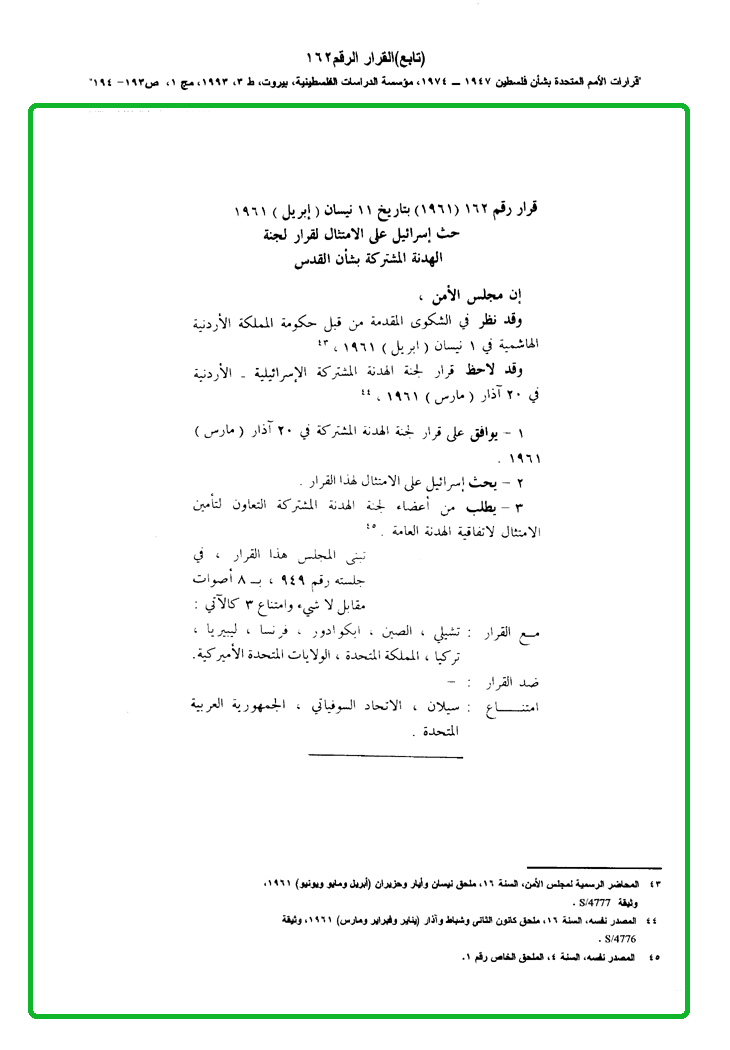 (تابع)القرار الرقم١٦٢
"قرارات الأمم المتحدة بشأن فلسطين ١٩٤٧ ــ ١٩٧٤، مؤسسة الدراسات الفلسطينية، بيروت، ط ٣، ١٩٩٣، مج ١، ص١٩٣- ١٩٤"
قرار رقم ١٦٢ (١٩٦١) بتاريخ ١١ نيسان ( إبريل ) ١٩٦١
حث إسرائيل على الامتثال لقرار لجنة
الهدنة المشتركة بشأن القدس
إن مجلس الأمن ،
وقد نظر في الشكوى المقدمة من قبل حكومة المملكة الأردنية
الهاشمية في ١ نيسان ( ابريل ) ١٩٦١ ، ٤٣
وقد لاحظ قرار لجنة الهدنة المشتركة الإسرائيلية ـ الأردنية
في ٢٠ آذار ( مارس ) ١٩٦١ ، ٤٤
١ - يوافق على قرار لجنة الهدنة المشتركة في ٢٠ آذار ( مارس )
١٩٦١ .
٢ - يحث إسرائيل على الامتثال لهذا القرار .
٣ - يطلب من أعضاء لجنة الهدنة المشتركة التعاون لتأمين
الامتثال لاتفاقية الهدنة العامة . ٤٥
تبنى المجلس هذا القرار ، في
جلسته رقم ٩٤٩ ، بــ ٨ أصوات
مقابل لا شيء وامتناع ٣ كالآتي :
مـع القرار : تشيلي ، الصين ، ايكوادور ، فرنسا ، ليبيريا ،
تركيا ، المملكة المتحدة ، الولايات المتحدة الأميركية.
ضد القرار : –
امتنـــــاع : سيلان ، الاتحاد السوفياتي ، الجمهورية العربية
المتحدة .
٤٣ المحاضر الرسمية لمجلس الأمن، السنة ١٦، ملحق نيسان وأيار وحزيران (أبريل ومايو ويونيو) ١٩٦١،
وثيقة S/4777 .
٤٤ المصدر نفسه، السنة ١٦، ملحق كانون الثاني وشباط وآذار (يناير وفبراير ومارس) ١٩٦١، وثيقة
S/4776 .
٤٥ المصدر نفسه، السنة ٤، الملحق الخاص رقم ١.